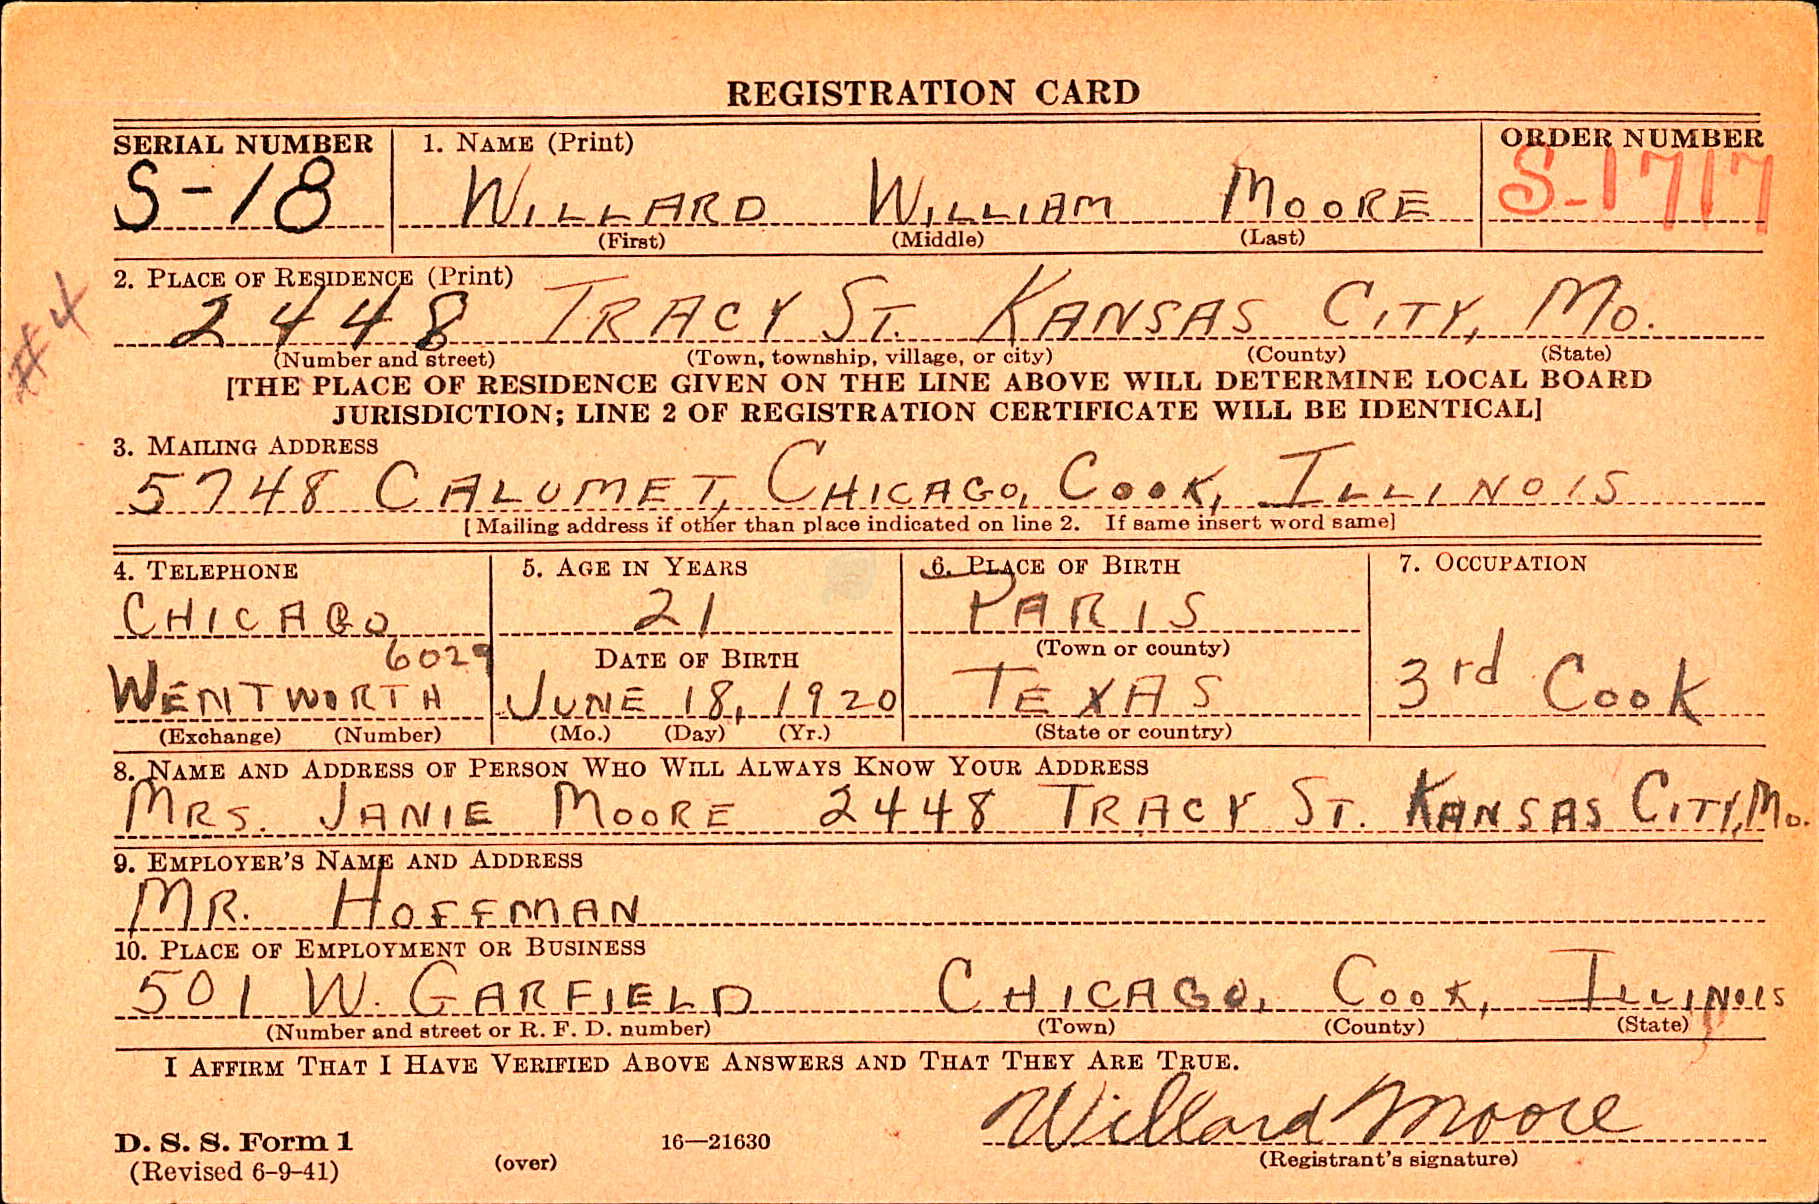 REGISTRATION CARD
SERIAL NUMBER 1. NAME (Print) ORDER NUMBER
S-18 WILLARD WILLIAM MOORE S-1717
(First) (Middle) (Last)
2. PLACE OF RESIDENCE (Print)
# 4
2448 TRACY ST. KANSAS CITY, MO.
(Number and street) (Town, township, village, or city) (County) (State)
[THE PLACE OF RESIDENCE GIVEN ON THE LINE ABOVE WILL DETERMINE LOCAL BOARD
JURISDICTION; LINE 2 OF REGISTRATION CERTIFICATE WILL BE IDENTICAL]
3. MAILING ADDRESS
5748 CALUMET, CHICAGO, COOK, ILLINOIS
[Mailing address if other than place indicated on line 2. If same insert word same]
4. TELEPHONE 5. AGE IN YEARS 6. PLACE OF BIRTH 7. OCCUPATION
CHICAGO 21 PARIS
(Town or county)
6029 DATE OF BIRTH
WENTWORTH JUNE 18, 1920 TEXAS 3rd COOK
(Exchange) (Number) (Mo.) (Day) (Yr.) (State or country)
8. NAME AND ADDRESS OF PERSON WHO WILL ALWAYS KNOW YOUR ADDRESS
MRS. JANIE MOORE 2448 TRACY ST. KANSAS CITY, MO.
9. EMPLOYER'S NAME AND ADDRESS
MR. HOFFMAN
10. PLACE OF EMPLOYMENT OR BUSINESS
501 W. GARFIELD CHICAGO, COOK, ILLINOIS
(Number and street or R. F. D. number) (Town) (County) (State)
I AFFIRM THAT I HAVE VERIFIED ABOVE ANSWERS AND THAT THEY ARE TRUE.
Willard Moore
D. S. S. Form 1 16—21630
(Revised 6-9-41) (over) (Registrant's signature)